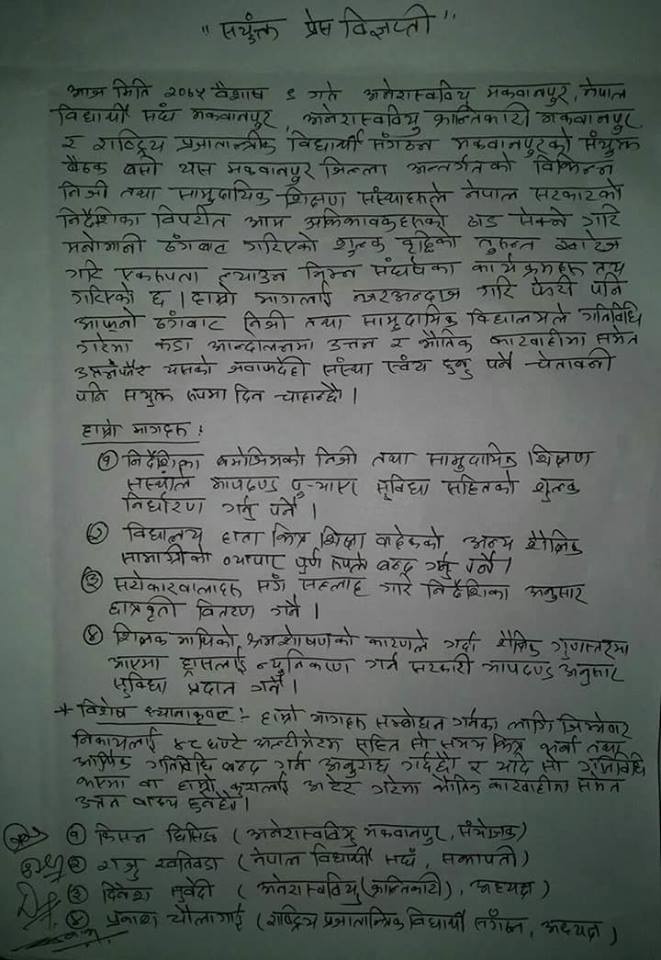 "संयुक्त प्रेस विज्ञप्ती"
आज मिति २०७५ वैशाष ६ गते अनेरास्ववियु मकवानपुर, नेपाल
विद्यार्थी संघ मकवानपुर, अनेरास्ववियु क्रान्तिकारी मकवानपुर
र राष्ट्रिय प्रजातान्त्रीक विद्यार्थी संगठन मकवानपुरको संयुक्त
बैठक बसी यस मकवानपुर जिल्ला अन्तर्गतको विभिन्न
निजी तथा सामुदायिक शिक्षण संस्थाहरुले नेपाल सरकारको
निर्देशिका विपरीत आम अभिभावकहरुको ढाड सेक्ने गरि
मनोमानी ढंगबाट गरिएको शुल्क वृद्दिको तुरुन्त खारेज
गरि एकरुपता ल्याउन निम्न संघर्षका कार्यक्रमहरु तय
गरिएको छ । हाम्रो मागलाई नजरअन्दाज गरि फेरी पनि
आफ्नो ढंगबाट निजी तथा सामुदायिक विद्यालयले गतिविधि
गरेमा कडा आन्दोलनमा उत्रन र भौतिक कारवाहीमा समेत
उत्रनेछौं यसको जवाफदेही संस्था स्वंय हुनु पर्ने चेतावनी
पनि संयुक्त रुपमा दिन चाहान्छौं ।
हाम्रो मागहरु :
(१) निर्देशिका बमोजिमको निजी तथा सामुदायिक शिक्षण
संस्थाले मापदण्ड पु-याएर सुविधा सहितको शुल्क
निर्धारण गर्नु पर्ने ।
(२) विद्यालय हाता भित्र शिक्षा बाहेकको अन्य शैक्षिक
सामाग्रीको व्यापार पुर्ण रुपले बन्द गर्नु पर्ने ।
(३) सरोकारवालाहरु सगँ सल्लाह गरि निर्देशिका अनुसार
छात्रवृती वितरण गर्ने ।
(४) शिक्षक माथिको श्रमशोषणको कारणले गर्दा शैक्षिक गुणस्तरमा
आएमा ह्रासलाई न्युनिकरण गर्न सरकारी मापदण्ड अनुसार
सुविधा प्रदान गर्ने ।
* विशेष ध्यानाकृषण :- हाम्रो मागहरु सम्बोधन गर्नका लागि जिम्मेवार
निकायलाई ४८ घण्टे अल्टीमेटम सहित सो समय भित्र भर्ना तथा
आर्थिक गतिविधि बन्द गर्न अनुरोध गर्दछौं र यदि सो गतिविधि
भएमा वा हाम्रो कुरालाई अटेर गरेमा भौतिक कारवाहीमा समेत
उत्रन बाध्य हुनेछौं ।
(१) किसन घिसिङ (अनेरास्ववियु मकवानपुर, संयोजक)
(२) राजु खतिवडा (नेपाल विद्यार्थी संघ, सभापती)
(३) दिनेश सुवेदी (अनेरास्ववियु (क्रान्तिकारी), अध्यक्ष)
(४) प्रकाश चौलागाई (राष्ट्रिय प्रजातान्त्रिक विद्यार्थी संगठन, अध्यक्ष)